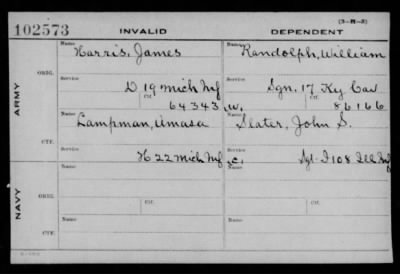 (3-M-3)
102573 INVALID DEPENDENT
Name Harris, James Name Randolph, William
ORIG.
Service D 19 Mich Inf Service Sgn. 17 Ky Cav
Ctf. 64343 W. Ctf. 86166
ARMY
Name Lampman, Amasa Name Slater, John S.
CTF.
Service H 22 Mich Inf C. Service Sgt. I 108 Ill Inf
Name Name
ORIG.
Service Ctf. Service Ctf.
NAVY
Name Name
CTF.